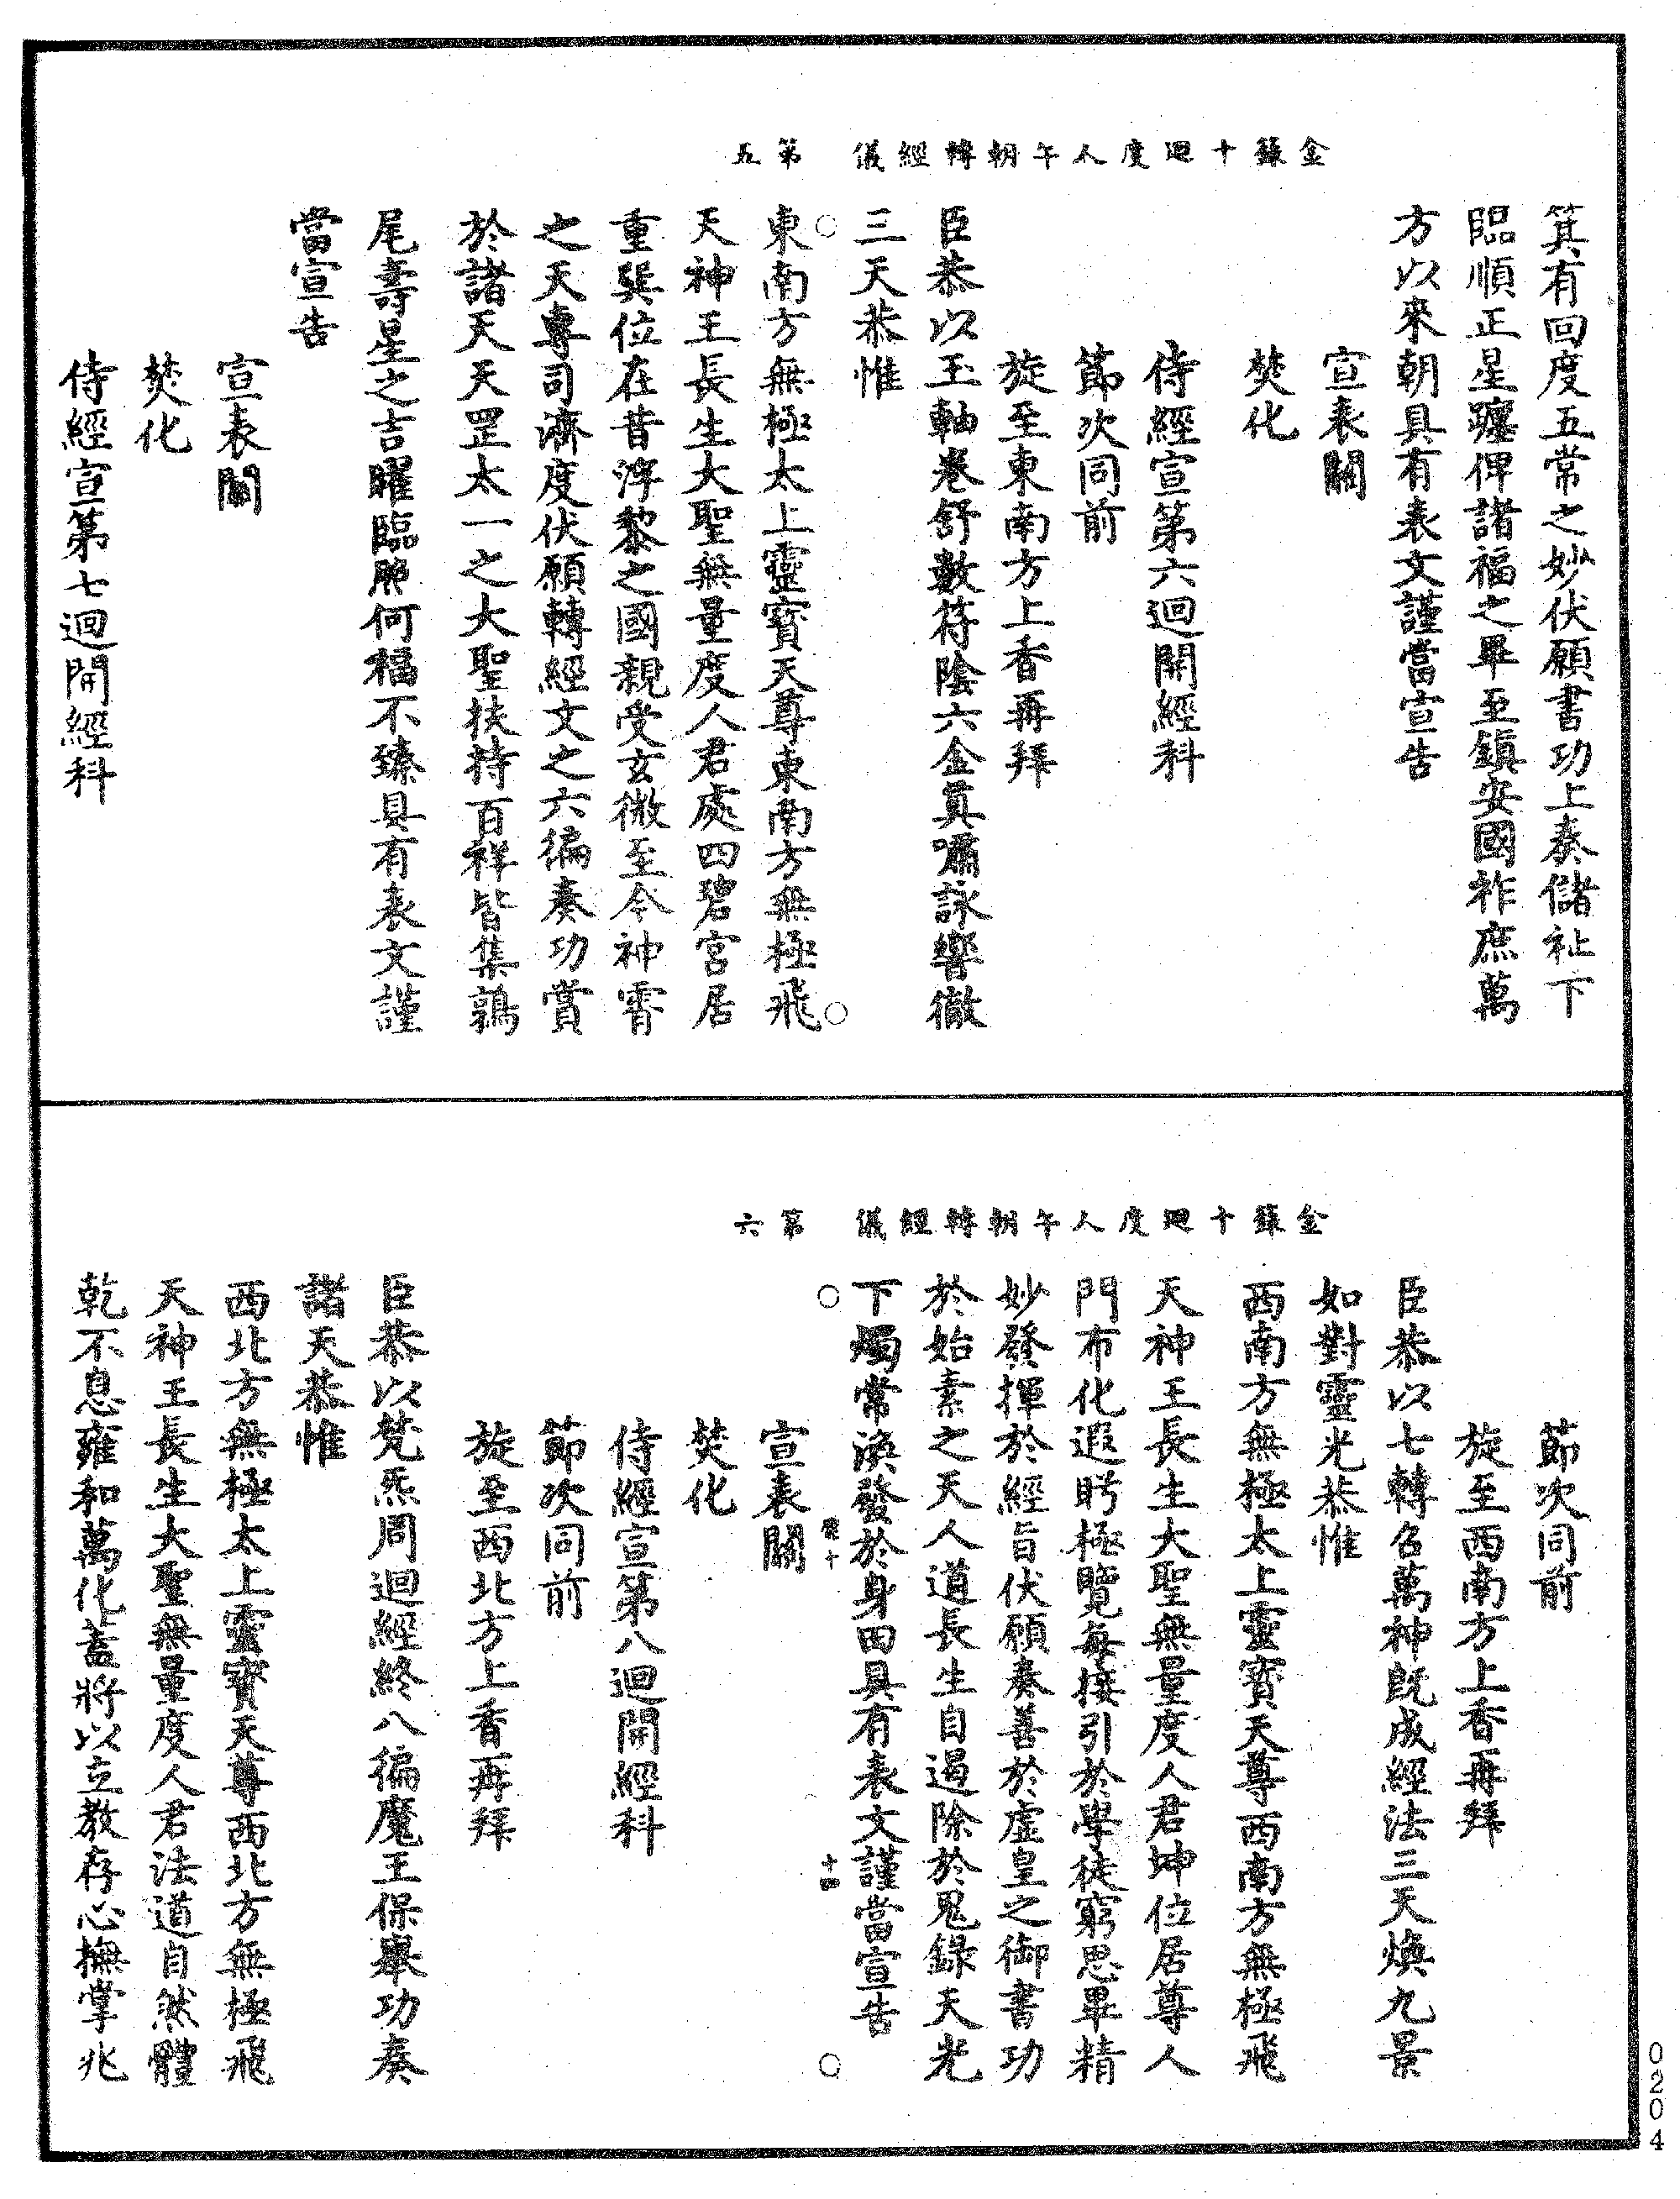 金籙十迴度人午朝轉經儀　第五
箕有回度五常之妙伏願書功上奏儲祉下
臨順正星躔俾諸福之畢至鎮安國祚庶萬
方以來朝具有表文謹當宣告
宣表關
焚化
侍經宣第六迴開經科
節次同前
旋至東南方上香再拜
臣恭以玉軸卷舒數符陰六金真嘯詠響徹
三天恭惟
東南方無極太上靈寶天尊東南方無極飛
天神王長生大聖無量度人君處四碧宮居
重巽位在昔浮黎之國親受玄微至今神霄
之天專司濟度伏願轉經文之六徧奏功賞
於諸天天罡太一之大聖扶持百祥皆集鶉
尾壽星之吉曜臨照何福不臻具有表文謹
當宣告
宣表關
焚化
侍經宣第七迴開經科
金籙十迴度人午朝轉經儀　第六
節次同前
旋至西南方上香再拜
臣恭以七轉名萬神既成經法三天煥九景
如對靈光恭惟
西南方無極太上靈寶天尊西南方無極飛
天神王長生大聖無量度人君坤位居尊人
門布化遐眄極覽每接引於學徒窮思畢精
妙發揮於經旨伏願奏善於虛皇之御書功
於始素之天人道長生自遏除於鬼錄天光
下燭常渙發於身田具有表文謹當宣告
十四
宣表關
焚化
侍經宣第八迴開經科
節次同前
旋至西北方上香再拜
臣恭以梵炁周迴經終八徧魔王保舉功奏
諸天恭惟
西北方無極太上靈寶天尊西北方無極飛
天神王長生大聖無量度人君法道自然體
乾不息雍和萬化蓋將以立教存心撫掌兆
0204